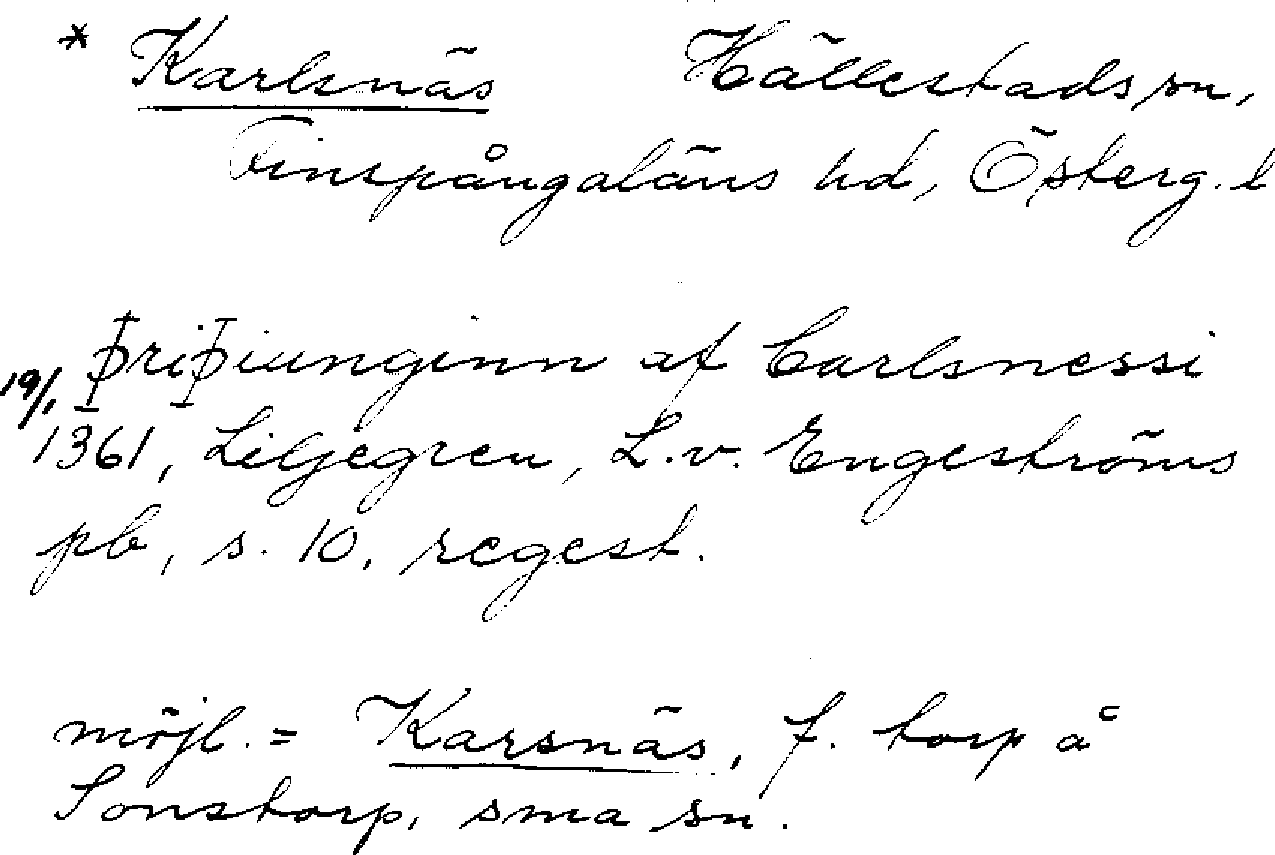 * Karlsnäs Hällestads sn,
Finspångaläns hd, Österg. l
þriþiunginn af Carlsnessi
19/1 1361, Liljegren, L.v. Engeströms
pb, s. 10, regest.
möjl. = Karsnäs, f. torp å
Sonstorp, sma sn.